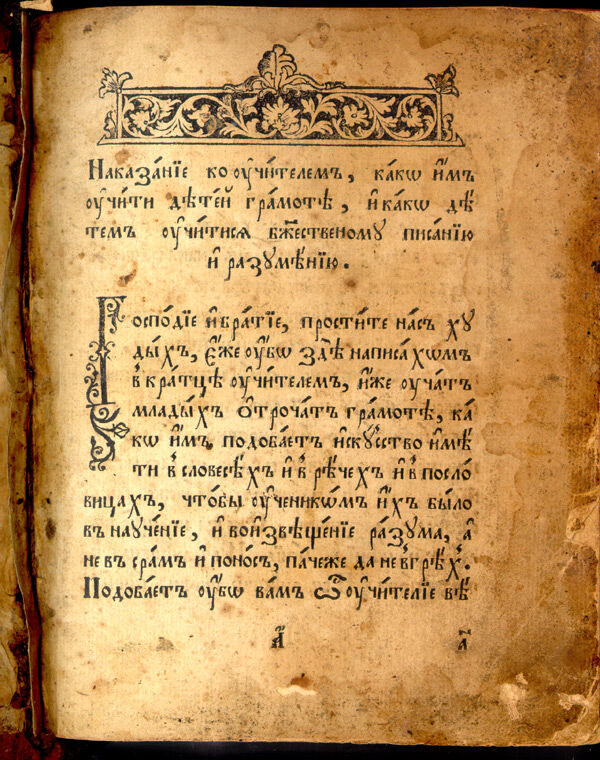 Наказа́нїе ко ᲂу҆чи́телемъ, ка́кѡ и҆̀мъ
ᲂу҆чи́ти дѣте́й гра́мотѣ, и҆ ка́кѡ дѣ́
темъ ᲂу҆чи́тися бж҃е́ственому писа́нїю
и҆ разумѣ́нїю.
Госпо́дїе и҆ бра́тїе, прости́те на́съ ху
ды́хъ, є҆́же ᲂу҆́бѡ здѣ̀ написа́хѡмъ
в кра́тцѣ ᲂу҆чи́телемъ, и҆́же ᲂу҆ча́тъ
млады́хъ ѻ҆троча́тъ гра́мотѣ, ка́
кѡ и҆̀мъ подоба́етъ и҆ску́сство и҆мѣ́
ти в словесѣ́хъ и҆ в рѣ́чехъ и҆ в посло́
вицахъ, что́бы ᲂу҆ченикѡ́мъ и҆́хъ бы́ло
въ науче́нїе, и҆ во и҆звѣще́нїе ра́зума, а҆
не въ сра́мъ и҆ поно́съ, па́чеже да не в грѣ́хъ.
Подоба́етъ ᲂу҆́бѡ ва́мъ ѽ ᲂу҆чи́телїе вѣ́
а҃ а҃